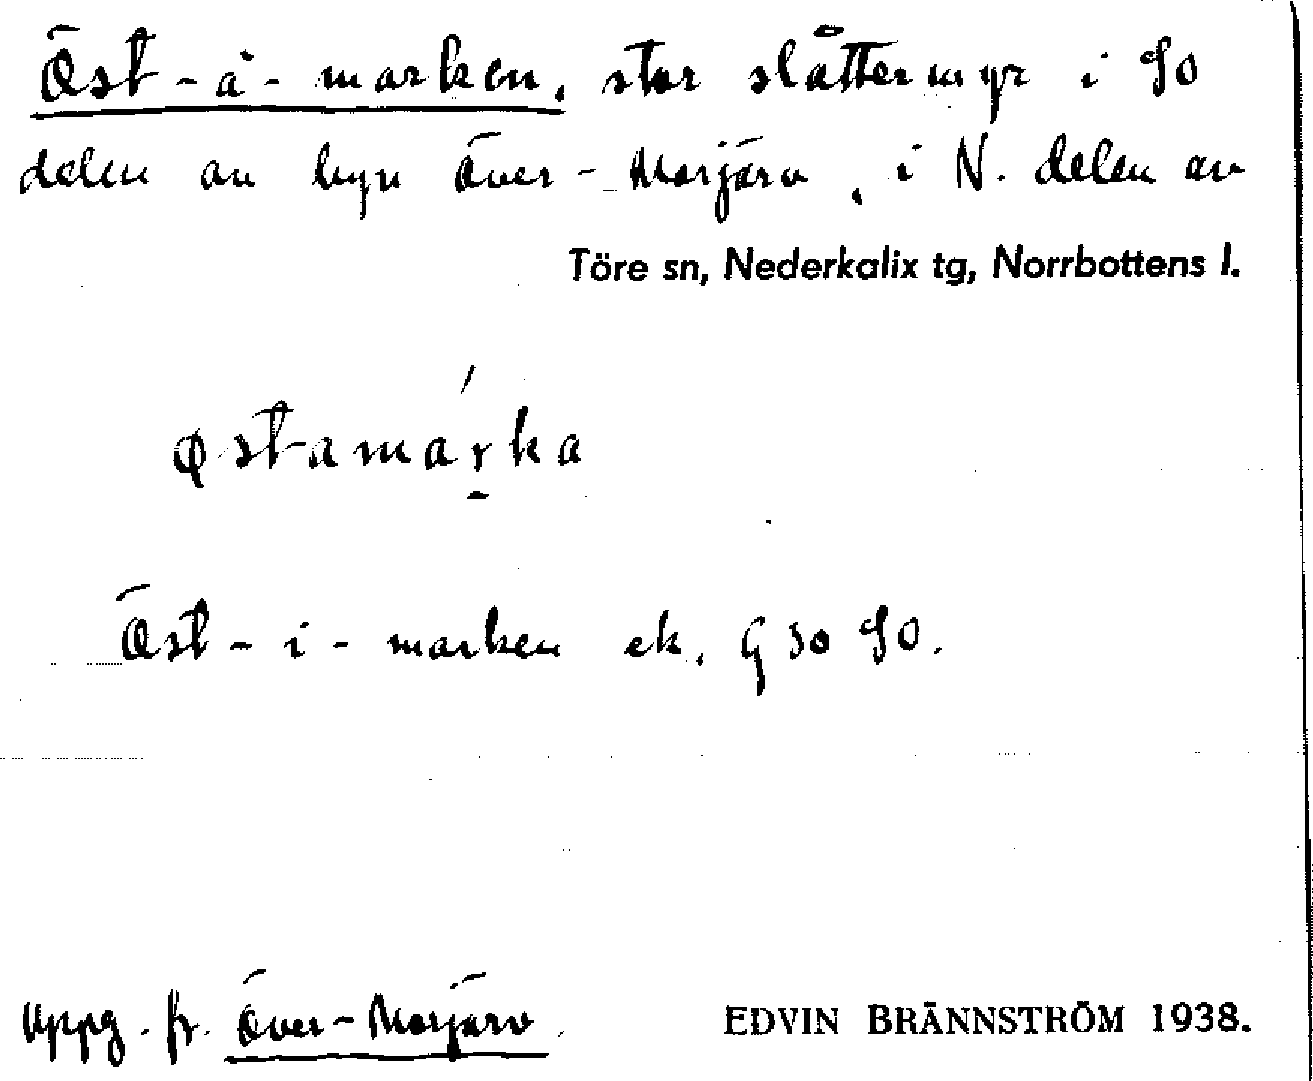 Öst-å-marken, stor slåttermyr i SO
delen av byn Över-Morjärv, i N. delen av
Töre sn, Nederkalix tg, Norrbottens l.
østamárka
Öst-i-marken ek. G 30 SO.
Uppg. fr. Över-Morjärv.
EDVIN BRÄNNSTRÖM 1938.